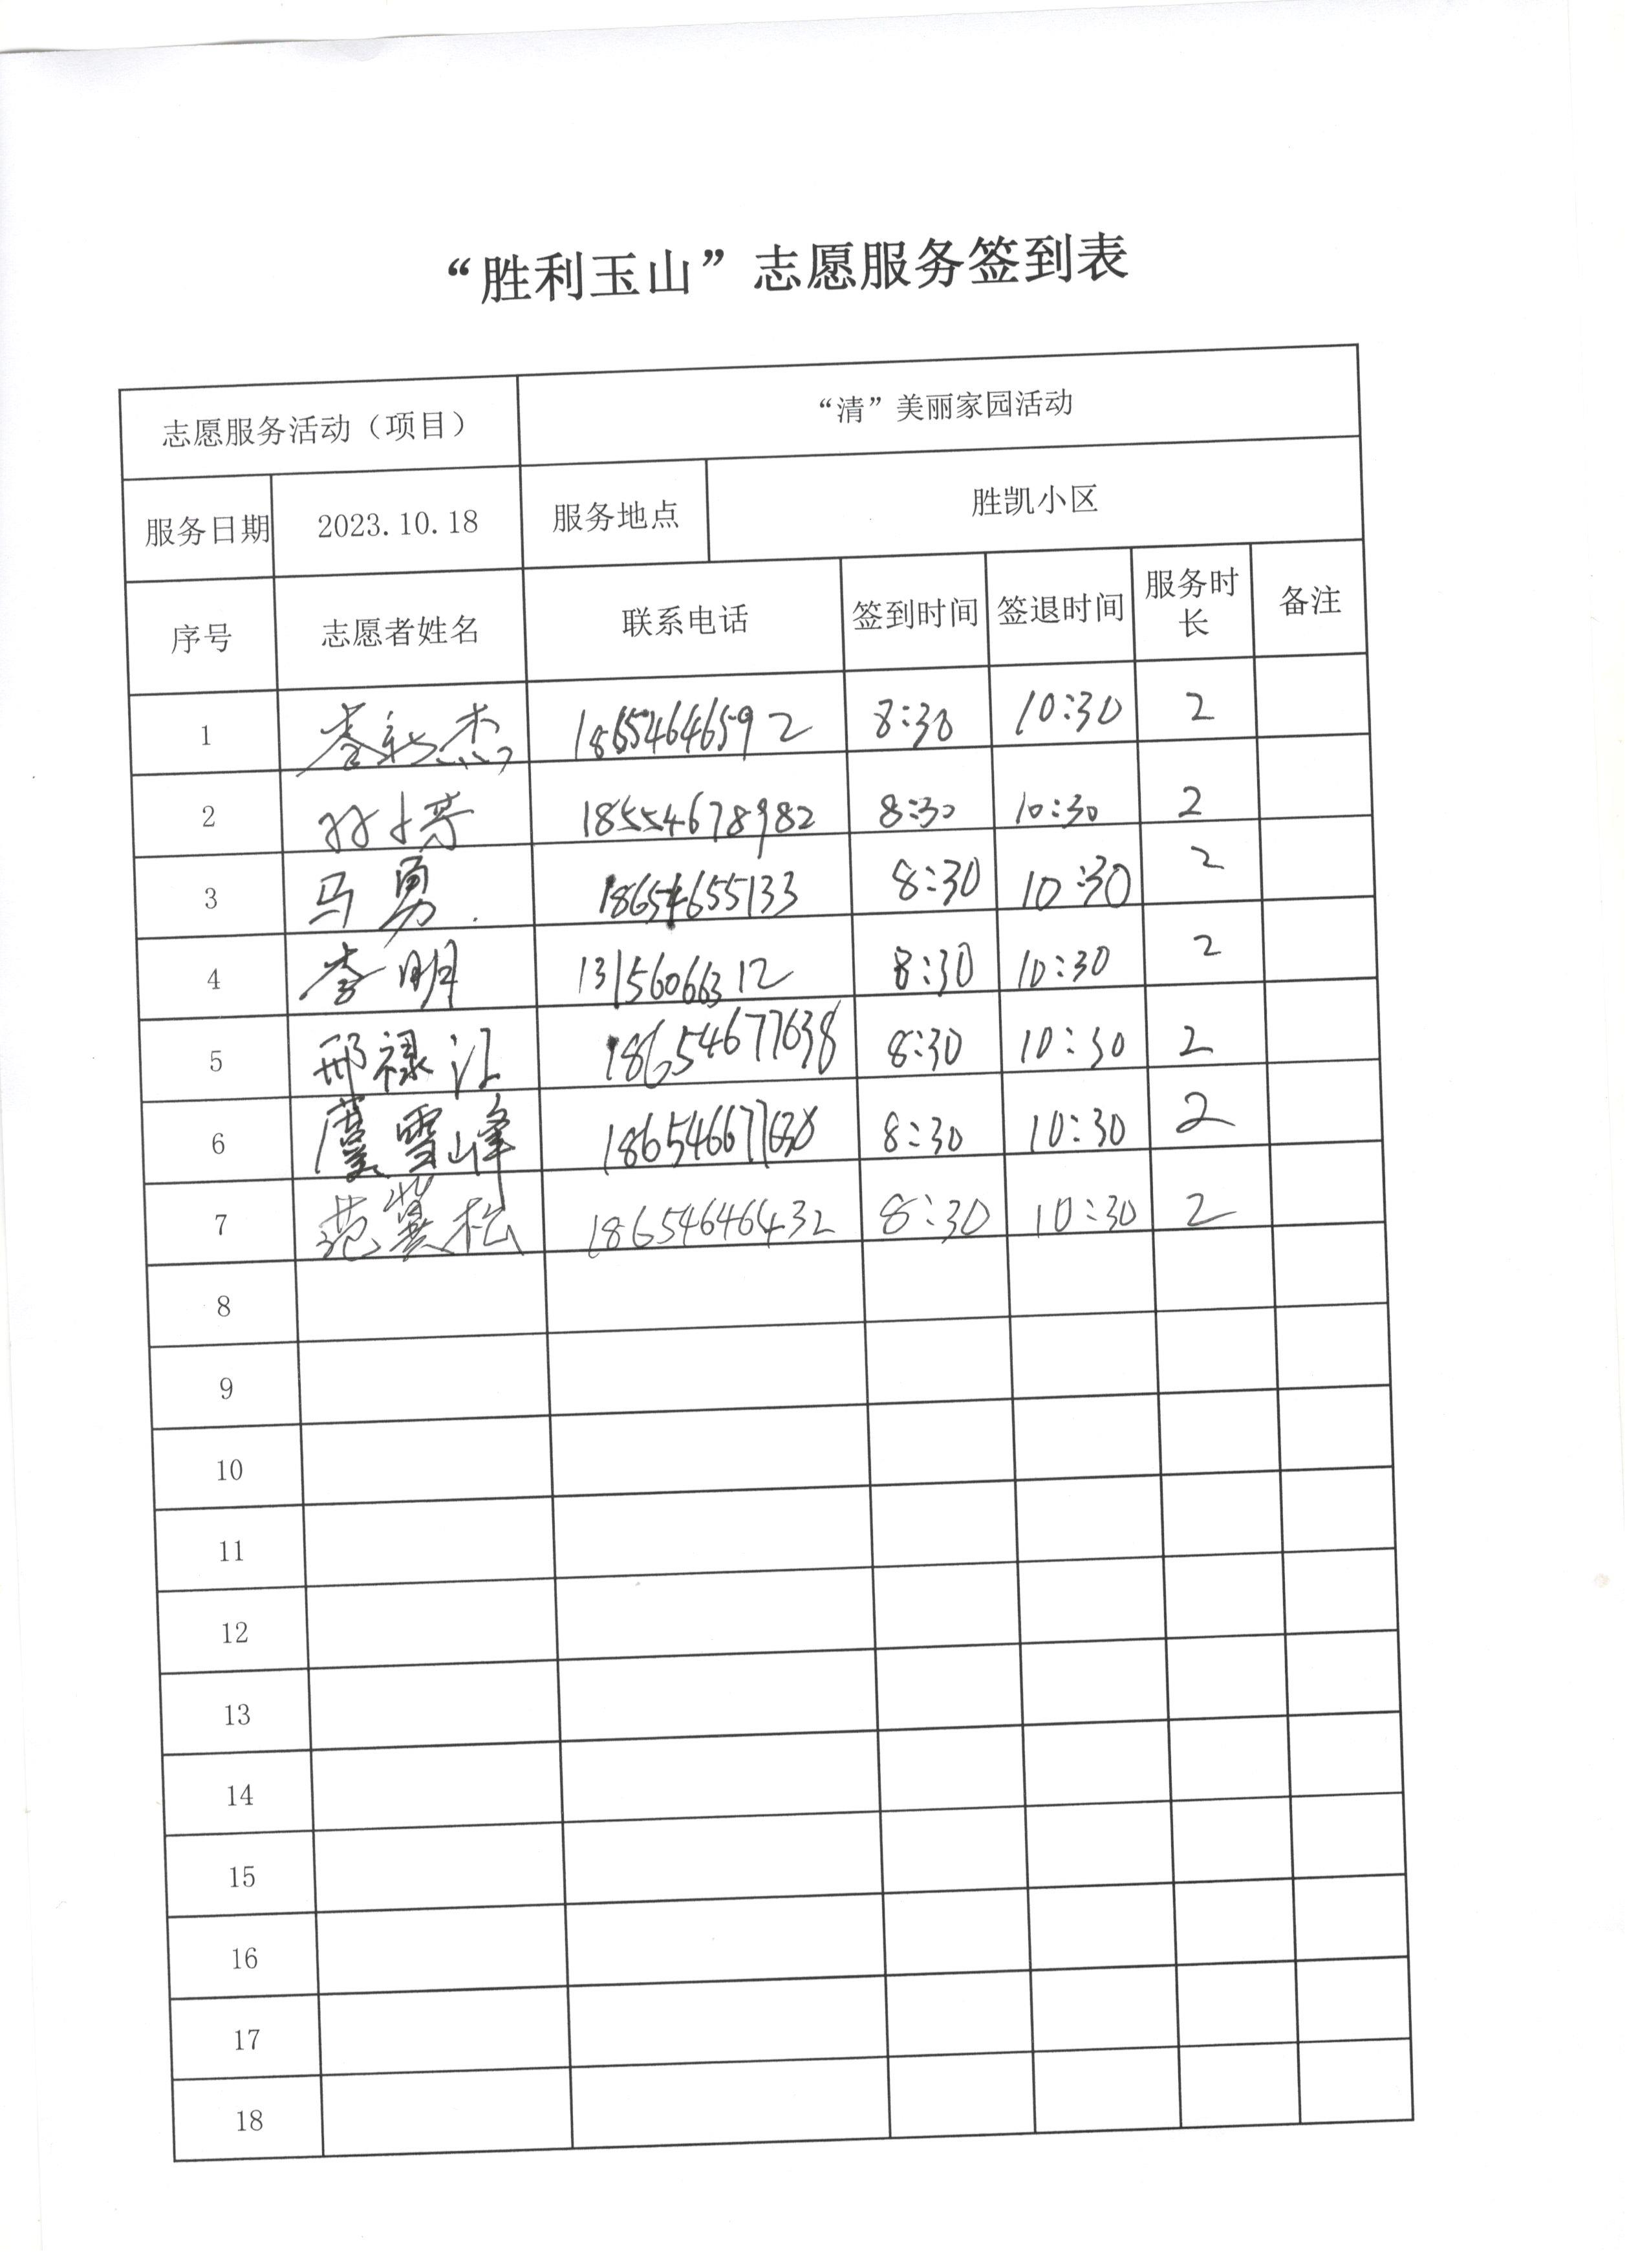 “胜利玉山”志愿服务签到表
志愿服务活动（项目） “清”美丽家园活动
服务日期 2023.10.18 服务地点 胜凯小区
序号 志愿者姓名 联系电话 签到时间 签退时间 服务时长 备注
1 李新杰 18654646592 8:30 10:30 2
2 孙婷 18554678982 8:30 10:30 2
3 马勇 18654655133 8:30 10:30 2
4 李明 13156066312 8:30 10:30 2
5 邢禄江 18654677638 8:30 10:30 2
6 虞雪峰 8:30 10:30 2
7 范冀松 18654646432 8:30 10:30 2
8
9
10
11
12
13
14
15
16
17
18